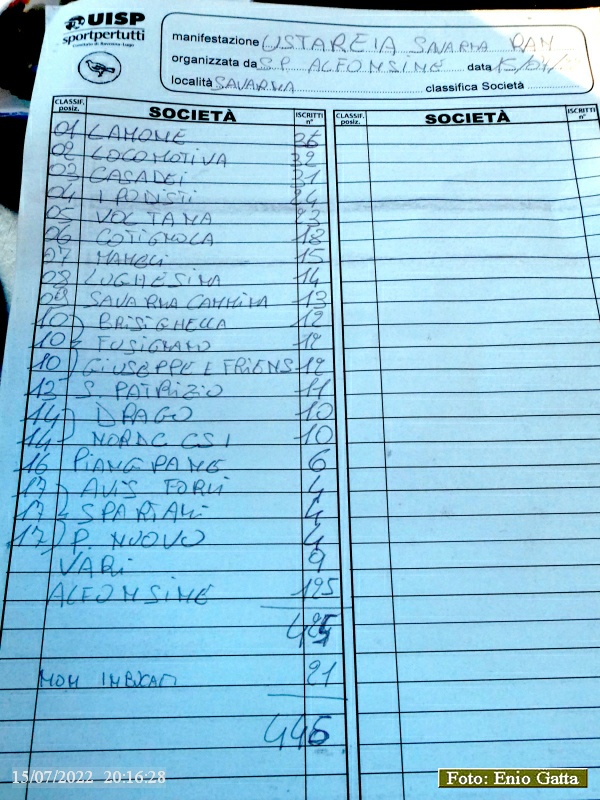 UISP
sportpertutti
Comitato di Ravenna-Lugo
manifestazione USTAREIA SAVARNA RAN
organizzata da S.P. ALFONSINE data 15/07/
località SAVARNA classifica Società
CLASSIF. posiz. SOCIETÀ ISCRITTI n° CLASSIF. posiz. SOCIETÀ ISCRITTI n°
01 LAMONE 36
02 LOCOMOTIVA 32
03 CASADEI 31
04 I PODISTI 24
05 VOLTANA 23
06 COTIGNOLA 18
07 MAMELI 15
08 LUGHESINA 14
09 SAVARNA CAMMINA 13
10 BRISIGHELLA 12
10 FUSIGNANO 12
10 GIUSEPPE E FRIENS 12
13 S. PATRIZIO 11
14 DRAGO 10
14 NORDC CSI 10
16 PIANGIPANE 6
17 AVIS FORLI 4
17 SPARTANI 4
17 P. NUOVO 4
VARI 9
ALFONSINE 125
425
NON INDICATI 21
446
15/07/2022 20:16:28
Foto: Enio Gatta